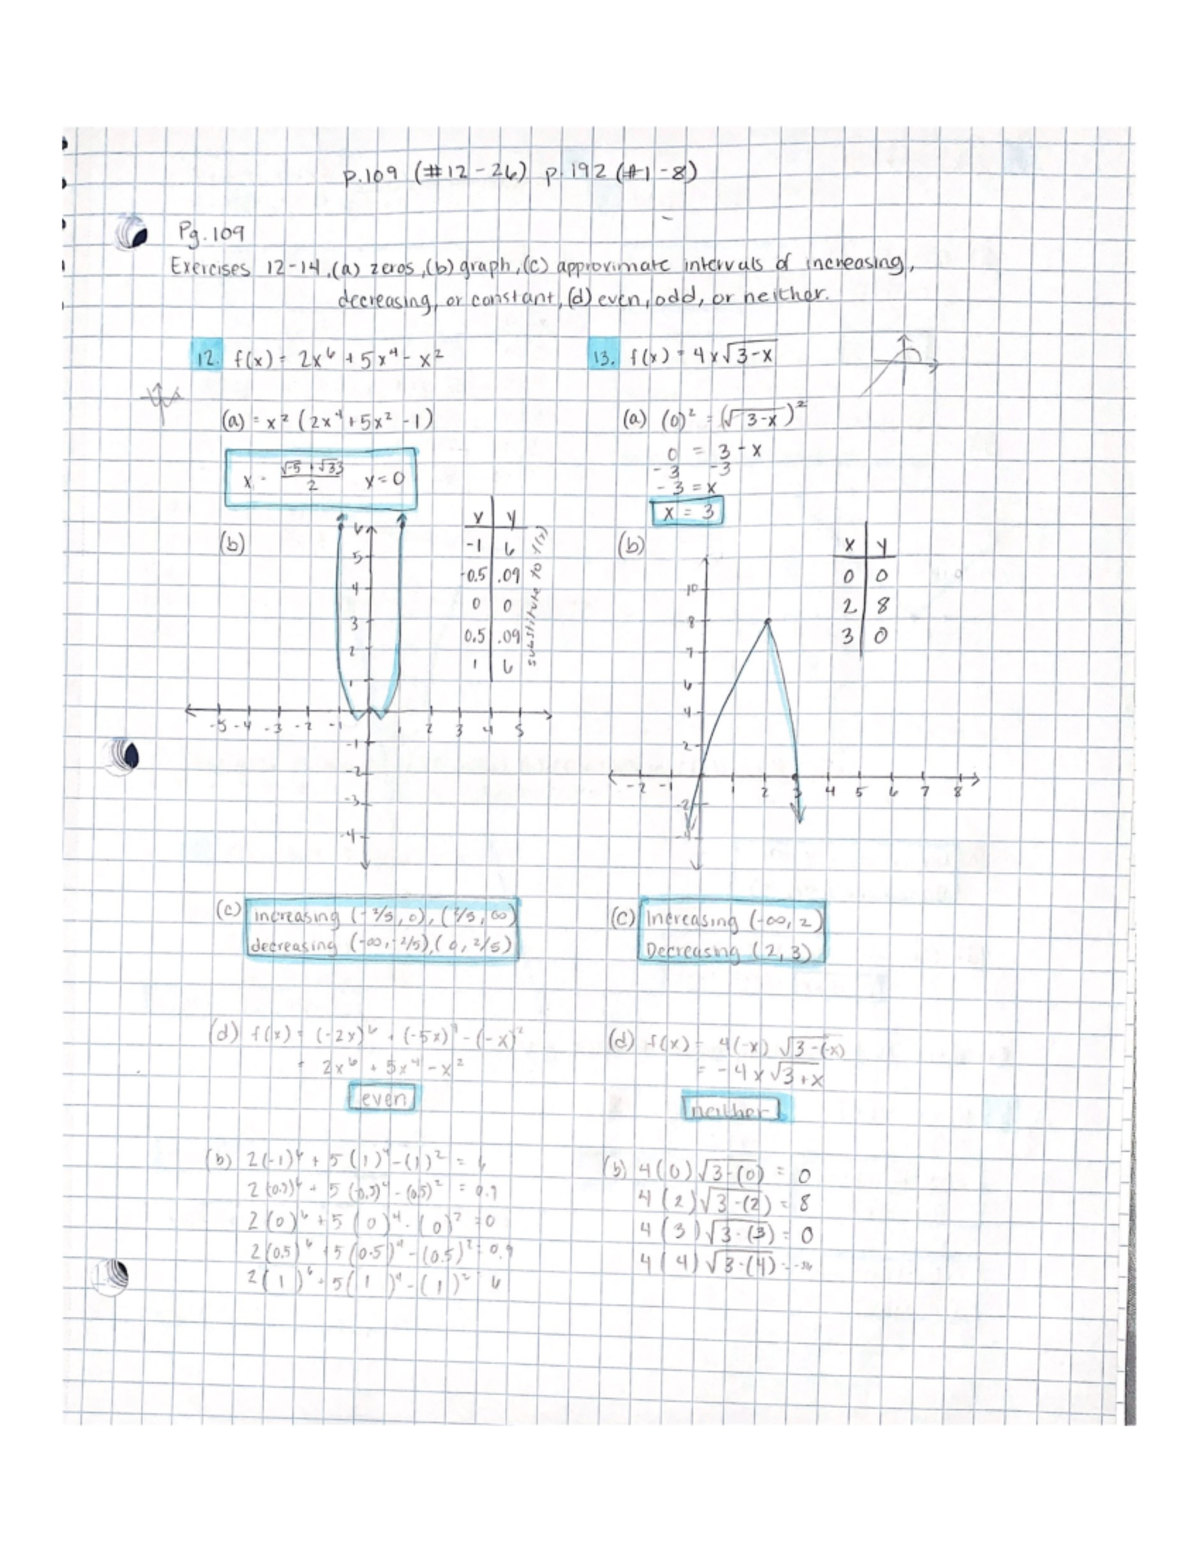 p.109 (#12-26) p.192 (#1-8)
Pg.109
Exercises 12-14, (a) zeros, (b) graph, (c) approximate intervals of increasing,
decreasing, or constant, (d) even, odd, or neither.
12. f(x) = 2x⁶ + 5x⁴ - x²
(a) = x² (2x⁴ + 5x² - 1)
x = (√-5 + √33)/2 x = 0
(b)
x y
-1 6
-0.5 .09
0 0
0.5 .09
1 6
substitute to f(x)
6
5
4
3
2
1
-5 -4 -3 -2 -1 1 2 3 4 5
-1
-2
-3
-4
(c) increasing (-2/5, 0), (2/5, ∞)
decreasing (-∞, -2/5), (0, 2/5)
(d) f(x) = (-2x)⁶ + (-5x)⁴ - (-x)²
= 2x⁶ + 5x⁴ - x²
even
(b) 2(-1)⁶ + 5(1)⁴ - (1)² = 6
2(0.5)⁶ + 5(-0.5)⁴ - (0.5)² = 0.9
2(0)⁶ + 5(0)⁴ - (0)² = 0
2(0.5)⁶ + 5(0.5)⁴ - (0.5)² = 0.9
2(1)⁶ + 5(1)⁴ - (1)² = 6
13. f(x) = 4x√3-x
(a) (0)² = (√3-x)²
0 = 3 - x
-3 -3
-3 = x
x = 3
(b)
x y
0 0
2 8
3 0
10
8
7
6
4
2
-2 -1 1 2 3 4 5 6 7 8
-2
(c) Increasing (-∞, 2)
Decreasing (2, 3)
(d) f(x) = 4(-x) √3-(-x)
= -4x√3+x
neither
(b) 4(0)√3-(0) = 0
4(2)√3-(2) = 8
4(3)√3-(3) = 0
4(4)√3-(4) =